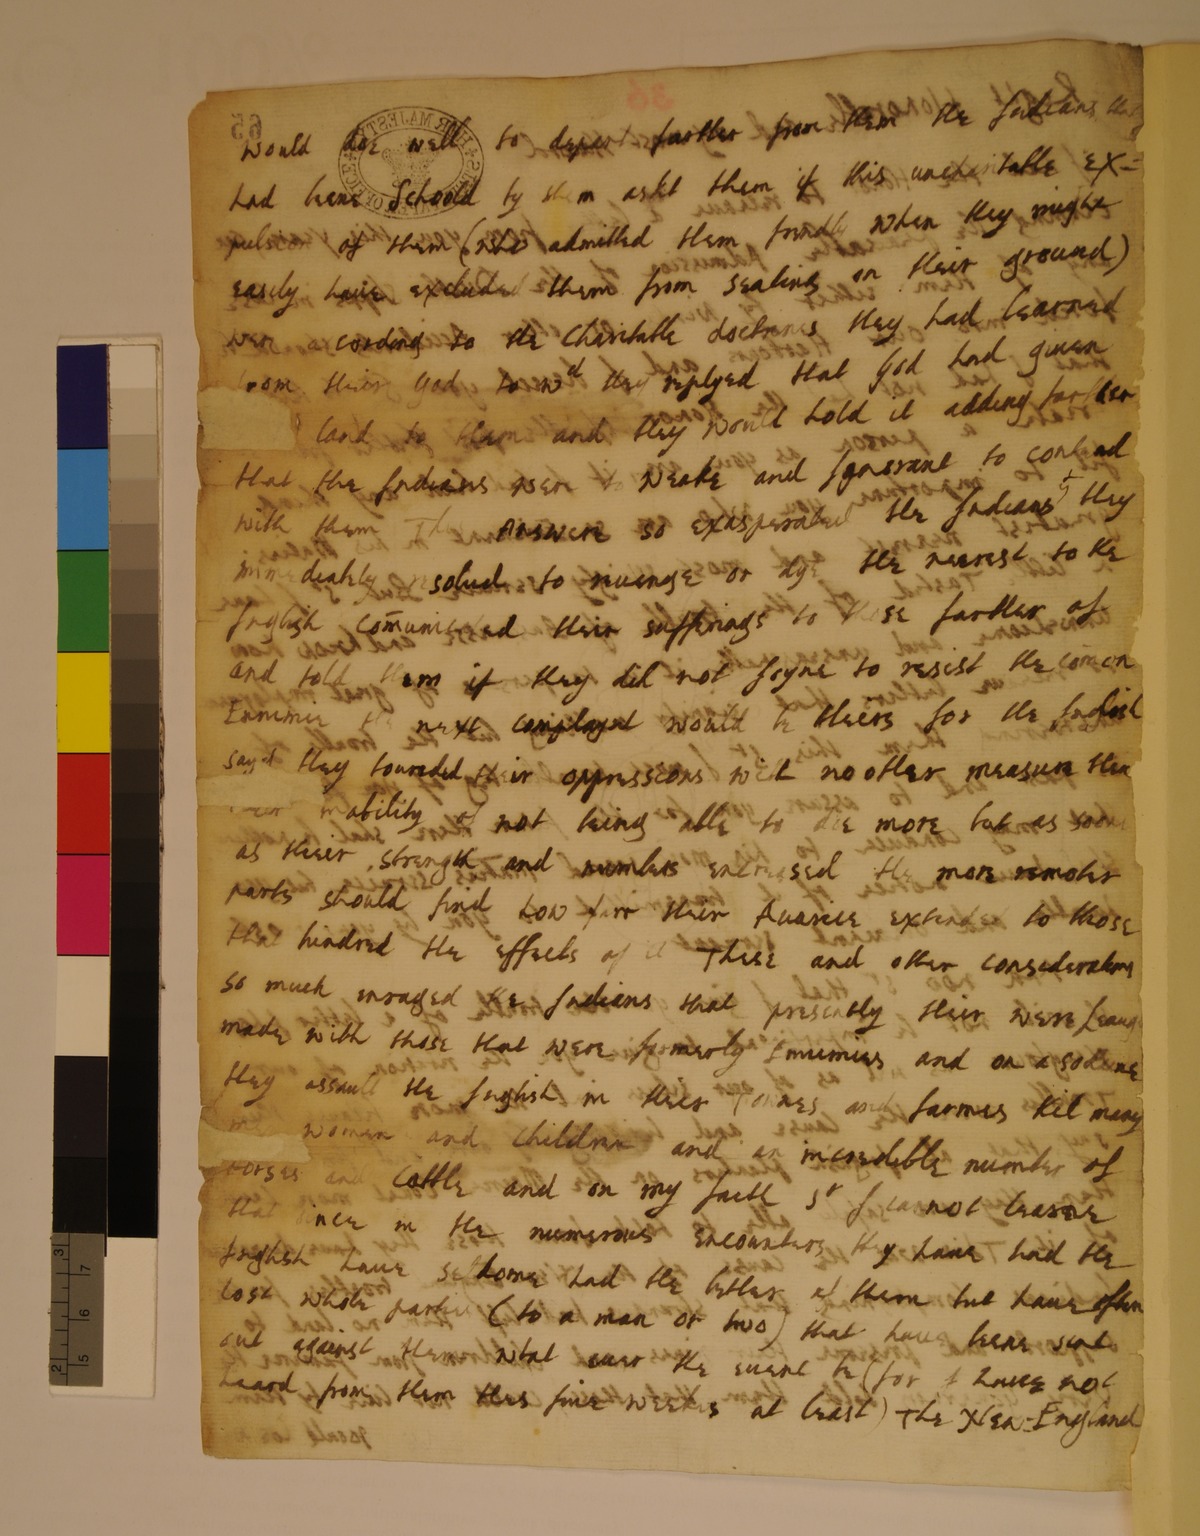 would doe well to depart farther from them the Indians
had beene Schoold by them askt them if this uncharitable ex=
pulsion of them (who admitted them frendly when they might
easily have excluded them from seating on their ground)
were acording to the Charitable doctrines they had learned
from their God to wch they replyed that God had given
land to them and they would hold it adding farther
that the Indians were to weake and Ignorant to contend
with them This Answere so exasperated the Indians they
immediately resolved to revenge or dye the nearest to the
English comunicated their sufferings to those farther of
and told them if they did not joyne to resist the comon
Ennimie the next complaynt would be theirs for the English
sayd they bounded their oppressions with no other measure then
their inability of not being able to doe more but as soone
as their strength and numbers encreased the more remoter
parts should find how farr their Avarice extended to those
that hindred the effects of it These and other considerations
so much enraged the Indians that presently their were leaugs
made with those that were formerly Enimies and on a sodaine
they assault the English in their Townes and farmes kil many
men women and Children and an incredible number of
horses and Cattle and on my faith Sr I cannot learne
that since in the numerous encounters they have had the
English have seldome had the better of them but have often
lost whole parties (to a man or two) that have beene sent
out against them what ever the event be (for I have not
heard from them thes five weekes at least) The New-England